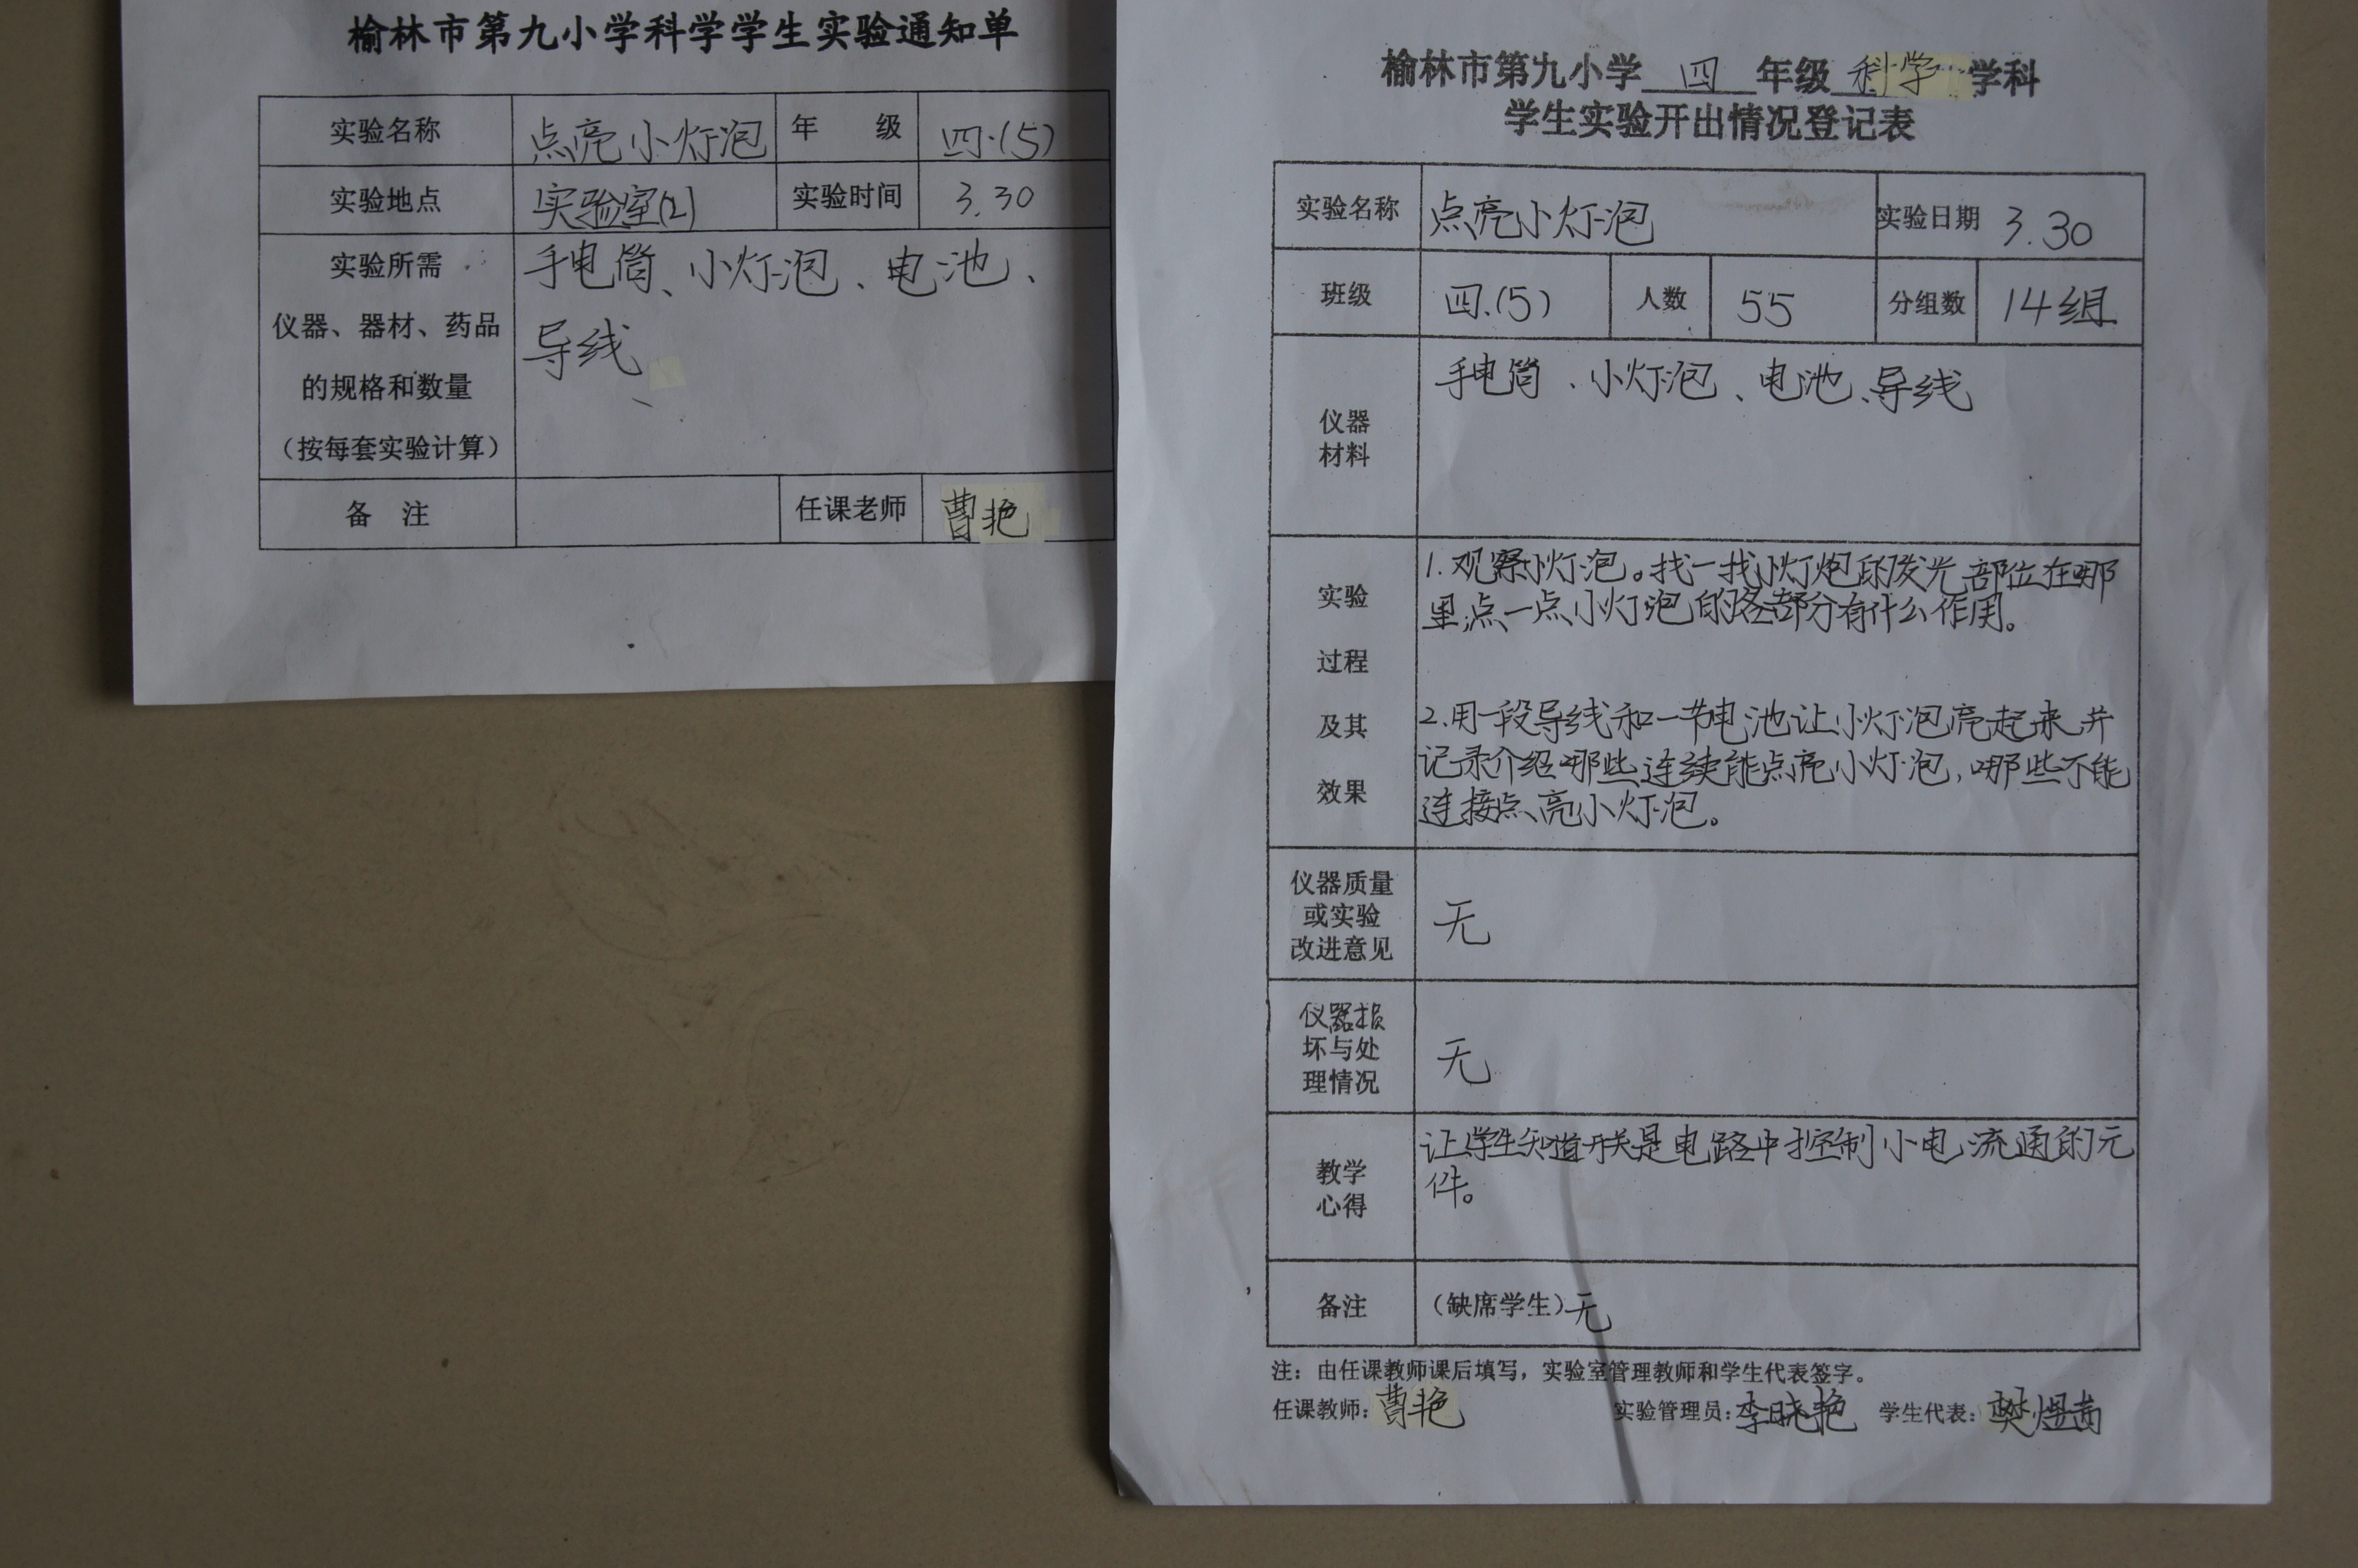 榆林市第九小学科学学生实验通知单
实验名称 点亮小灯泡 年 级 四.(5)
实验地点 实验室(2) 实验时间 3.30
实验所需
仪器、器材、药品
的规格和数量
（按每套实验计算）
手电筒、小灯泡、电池、
导线
备 注 任课老师 曹艳
榆林市第九小学 四 年级 科学 学科
学生实验开出情况登记表
实验名称 点亮小灯泡 实验日期 3.30
班级 四.(5) 人数 55 分组数 14组
仪器
材料
手电筒、小灯泡、电池、导线
实验
过程
及其
效果
1.观察小灯泡。找一找小灯炮的发光部位在哪
里,点一点小灯泡的各部分有什么作用。
2.用一段导线和一节电池让小灯泡亮起来并
记录介绍哪些连续能点亮小灯泡,哪些不能
连接点亮小灯泡。
仪器质量
或实验
改进意见
无
仪器损
坏与处
理情况
无
教学
心得
让学生知道开关是电路中控制小电流通的元
件。
备注 （缺席学生）无
注：由任课教师课后填写，实验室管理教师和学生代表签字。
任课教师：曹艳 实验管理员：李晓艳 学生代表：樊煜茜